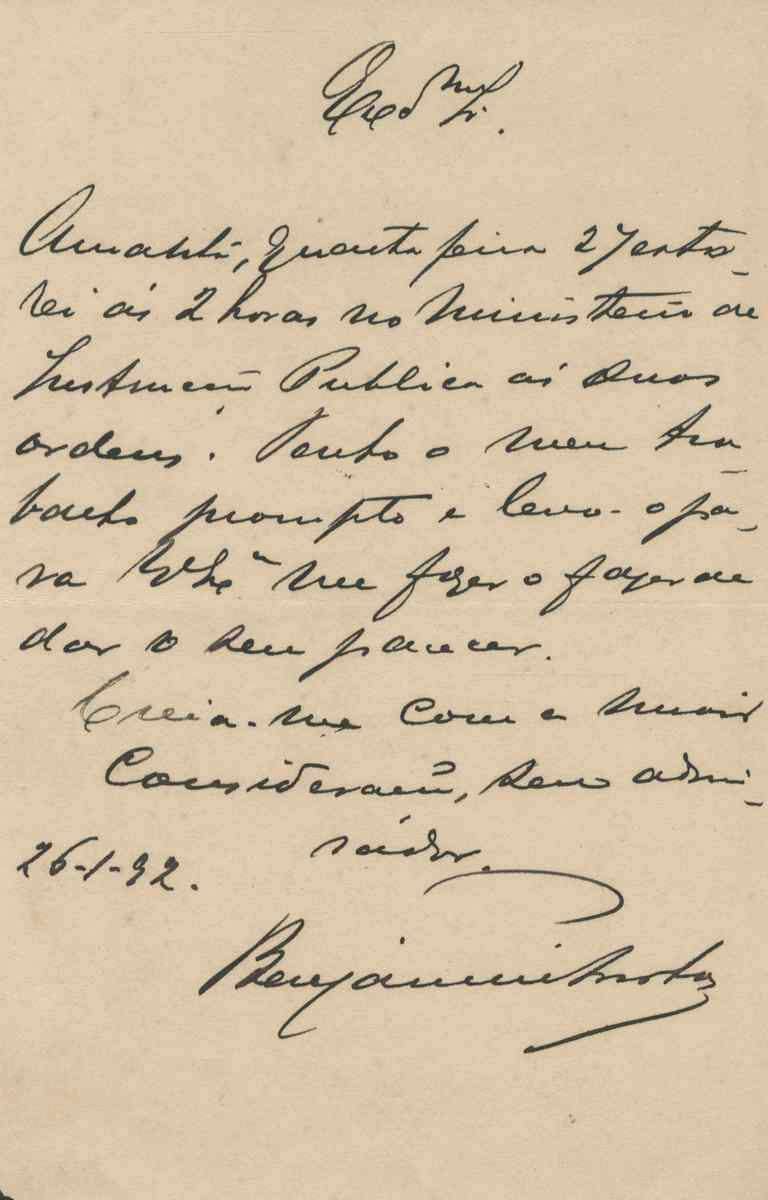 Exmo Sr.
Amanhã, quarta feira 27 esta-
rei ás 2 horas no Ministerio de
Instrucção Publica ás suas
ordens. Tenho o meu tra-
balho prompto e levo-o pa-
ra V. Exª me fazer o favor de
dar o seu parecer.
Creia-me com a maior
Consideração, seu admi-
rador.
26-1-92.
Benjamin